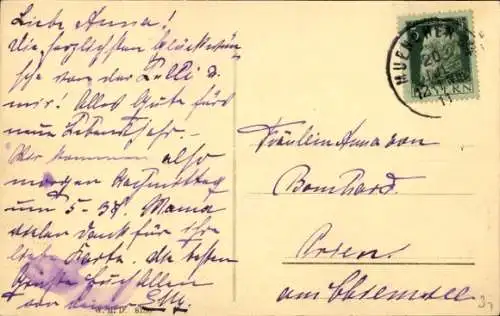 Liebe Anna!
Die herzlichsten Glückwün-
sche von der Lilli u.
mir! Alles Gute fürs
neue Lebensjahr. –
Wir kommen also
morgen Nachmittag
um 5 - Mama
vielen Dank für ihre
liebe Karte. Die besten
Grüsse Euch Allen
von Elly.
MUENCHEN
BAYERN
Fräulein Anna von
Bomhard.
Prien.
am Chiemsee